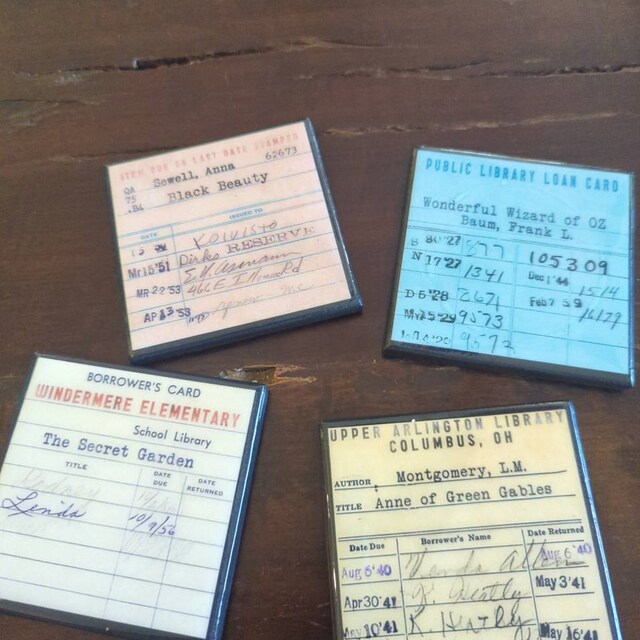 ITEM DUE ON LAST DATE STAMPED
QA
75
.B4
Sewell, Anna 62673
Black Beauty
ISSUED TO
DATE
KOIVISTO
Mr15'51 RESERVE
MR 22 '53 466 E Illinois Rd
AP 13 '53
PUBLIC LIBRARY LOAN CARD
Wonderful Wizard of OZ
Baum, Frank L.
N 17'27 1341
105309
Dec 1'44 1514
D 5 '28 2671
Feb 7 59 16129
My 15 '29 9573
9573
BORROWER'S CARD
WINDERMERE ELEMENTARY
School Library
The Secret Garden
TITLE DATE DUE DATE RETURNED
Linda 10/9/56
UPPER ARLINGTON LIBRARY
COLUMBUS, OH
AUTHOR Montgomery, L.M.
TITLE Anne of Green Gables
Date Due Borrower's Name Date Returned
Aug 6'40 Aug 6'40
Apr30'41 May 3'41
May 10'41 May 16'41